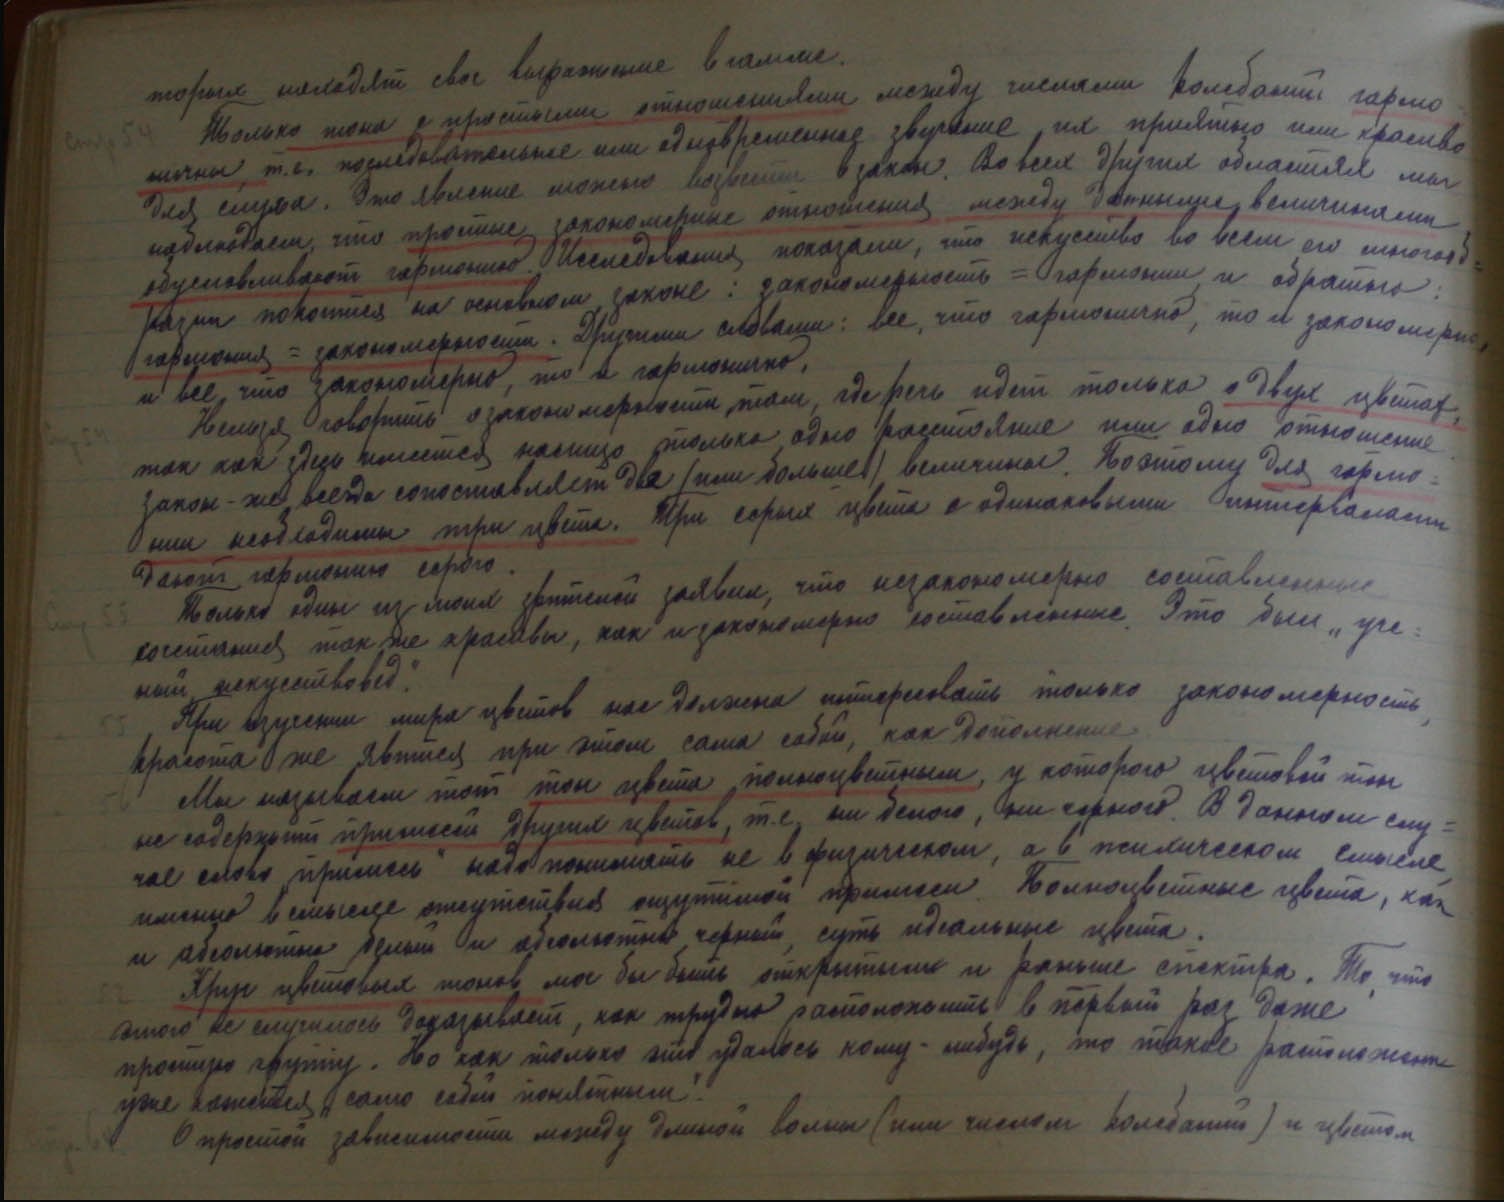 торых находят свое выражение в гамме.
стр 54 Только тона с простыми отношениями между числами колебаний гармо-
ничны, т.е. последовательное или одновременное звучание их приятно или красиво
для слуха. Это явление можно возвести в закон. Во всех других областях мы
наблюдаем, что простые закономерные отношения между данными величинами
обусловливают гармонию. Исследования показали, что искусство во всем его многооб=
разии покоится на основном законе: закономерность = гармонии и обратно:
гармония = закономерности. Другими словами: все, что гармонично, то и закономерно,
и все, что закономерно, то и гармонично.
Стр 54 Нельзя говорить о закономерности там, где речь идет только о двух цветах,
так как здесь имеется налицо только одно расстояние или одно отношение.
Закон-же всегда сопоставляет две (или больше) величины. Поэтому для гармо=
нии необходимы три цвета. Три серых цвета с одинаковыми интервалами
дают гармонию серого.
Стр 55 Только один из моих зрителей заявил, что незакономерно составленные
сочетания так же красивы, как и закономерно составленные. Это был „уче=
ный искусствовед".
55 При изучении мира цветов нас должна интересовать только закономерность,
красота же явится при этом сама собой, как дополнение
56 Мы называем тот тон цвета полноцветным, у которого цветовой тон
не содержит примесей других цветов, т.е. ни белого, ни черного. В данном слу=
чае слово „примесь" надо понимать не в физическом, а в психическом смысле,
именно в смысле отсутствия ощутимой примеси. Полноцветные цвета, как
и абсолютно белый и абсолютно черный, суть идеальные цвета.
Круг цветовых тонов мог бы быть открытым и раньше спектра. То, что
этого не случилось доказывает, как трудно расположить в первый раз даже
простую группу. Но как только это удалось кому-нибудь, то такое расположение
уже кажется „само собой понятным".
О простой зависимости между длиной волны (или числом колебаний) и цветом